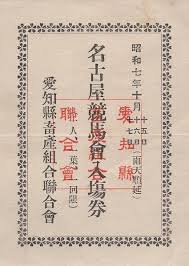 昭和七年十月
十五日
十六日
十七日
(雨天順延)
名古屋競馬會入場券
一人一葉一回限
愛知縣畜產組合聯合會
愛知縣
聯合會